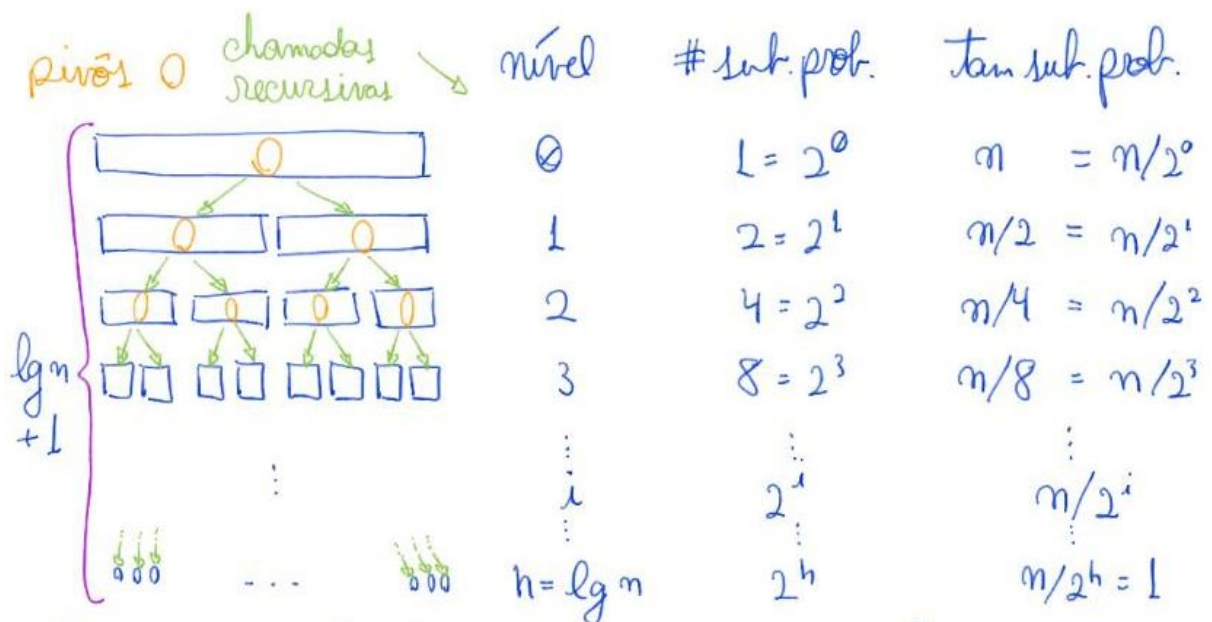 pivôs 0 chamadas recursivas nível # sub. prob. tam sub. prob.
0 1 = 2⁰ n = n/2⁰
1 2 = 2¹ n/2 = n/2¹
2 4 = 2² n/4 = n/2²
lg n + 1 3 8 = 2³ n/8 = n/2³
i 2ⁱ n/2ⁱ
h = lg n 2ʰ n/2ʰ = 1